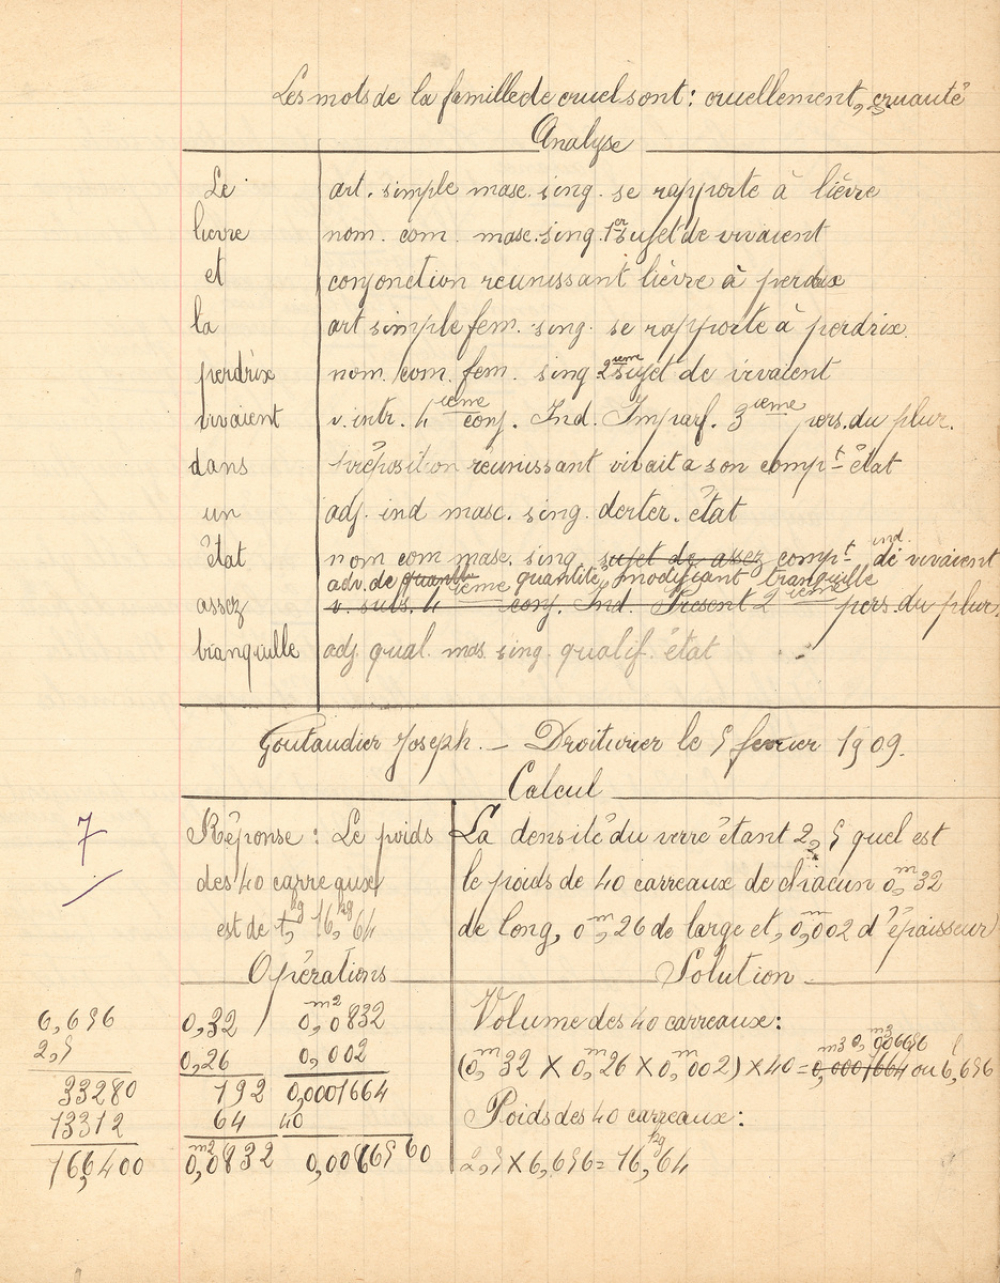 Les mots de la famille de cruel sont : cruellement, cruauté
Analyse
Le art. simple masc. sing. se rapporte à lièvre
lievre nom. com. masc. sing. 1er sujet de vivaient
et conjonction reunissant lièvre à perdrix
la art simple fem. sing. se rapporte à perdrix.
perdrix nom. com. fem. sing 2ieme sujet de vivaient
vivaient v. intr. 4ieme conj. Ind. Imparf. 3ieme pers. du plur.
dans préposition réunissant vivait a son compt état
un adj. ind masc. sing. derter. état
état nom com masc. sing sujet de assez compt ind. de vivaient
adv. de quantité, modifiant tranquille
assez v. subs. 4ieme conj. Ind. Présent 2ieme pers. du plur.
tranquille adj qual. mas. sing. qualif. état
Goutaudier Joseph. — Droiturier le 5 fevrier 1909.
Calcul
7
Réponse : Le poids
des 40 carreaux
est de 16,kg64
La densité du verre étant 2,5 quel est
le poids de 40 carreaux de chacun 0,m32
de long, 0,m26 de large et, 0,m002 d'épaisseur
Opérations
6,656
2,5
33280
13312
166,400
0,32
0,26
192
64
0,m20832
0,m20832
0,002
0,0001664
40
0,0066560
Solution
Volume des 40 carreaux :
(0,m32 X 0,m26 X 0,m002) X 40 = 0,0001664 m3 0,m3006656 ou 6,l656
Poids des 40 carreaux :
2,5 X 6,656 = 16,kg64